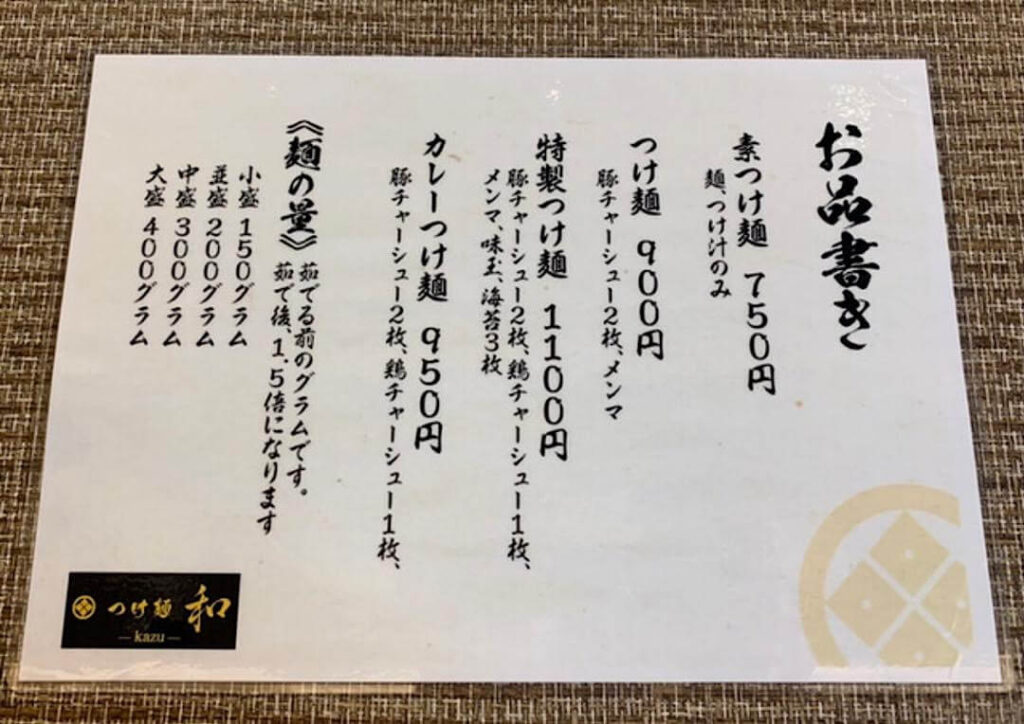 お品書き
素つけ麺 750円
麺、つけ汁のみ
つけ麺 900円
豚チャーシュー2枚、メンマ
特製つけ麺 1100円
豚チャーシュー2枚、鶏チャーシュー1枚、
メンマ、味玉、海苔3枚
カレーつけ麺 950円
豚チャーシュー2枚、鶏チャーシュー1枚、
《麺の量》 茹でる前のグラムです。
茹で後、1.5倍になります
小盛 150グラム
並盛 200グラム
中盛 300グラム
大盛 400グラム
つけ麺 和
— kazu —